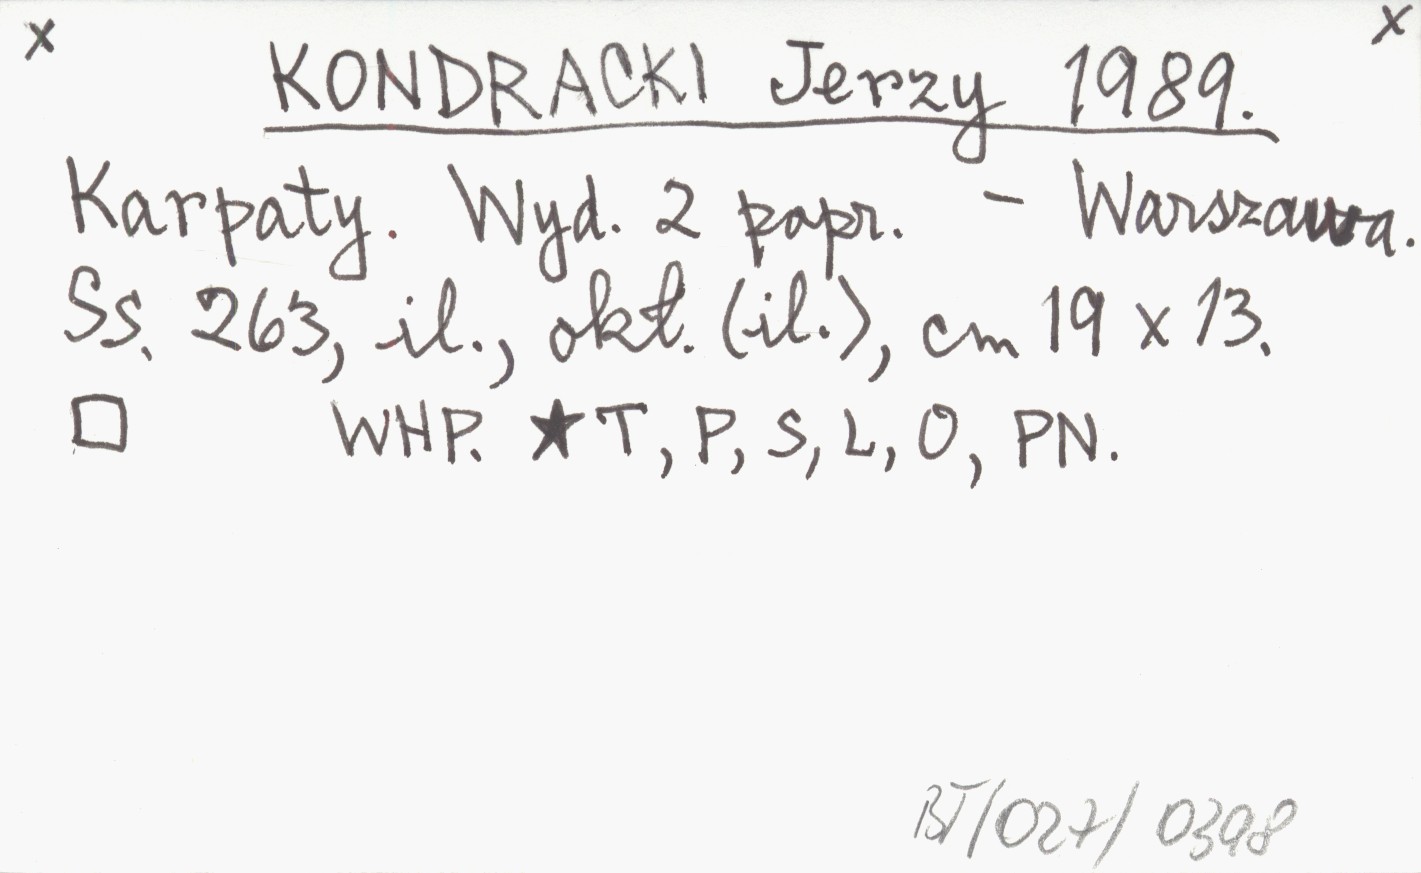 x x
KONDRACKI Jerzy 1989.
Karpaty. Wyd. 2 popr. - Warszawa.
Ss. 263, il., okł. (il.), cm 19 x 13.
□ WHP. ★T, P, S, L, O, PN.
BT/027/ 0398